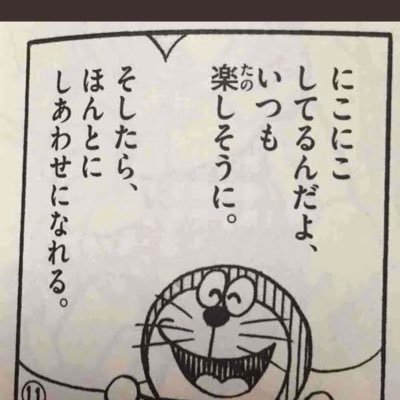 にこにこ
してるんだよ、
いつも
楽しそうに。
たの
そしたら、
ほんとに
しあわせになれる。
11